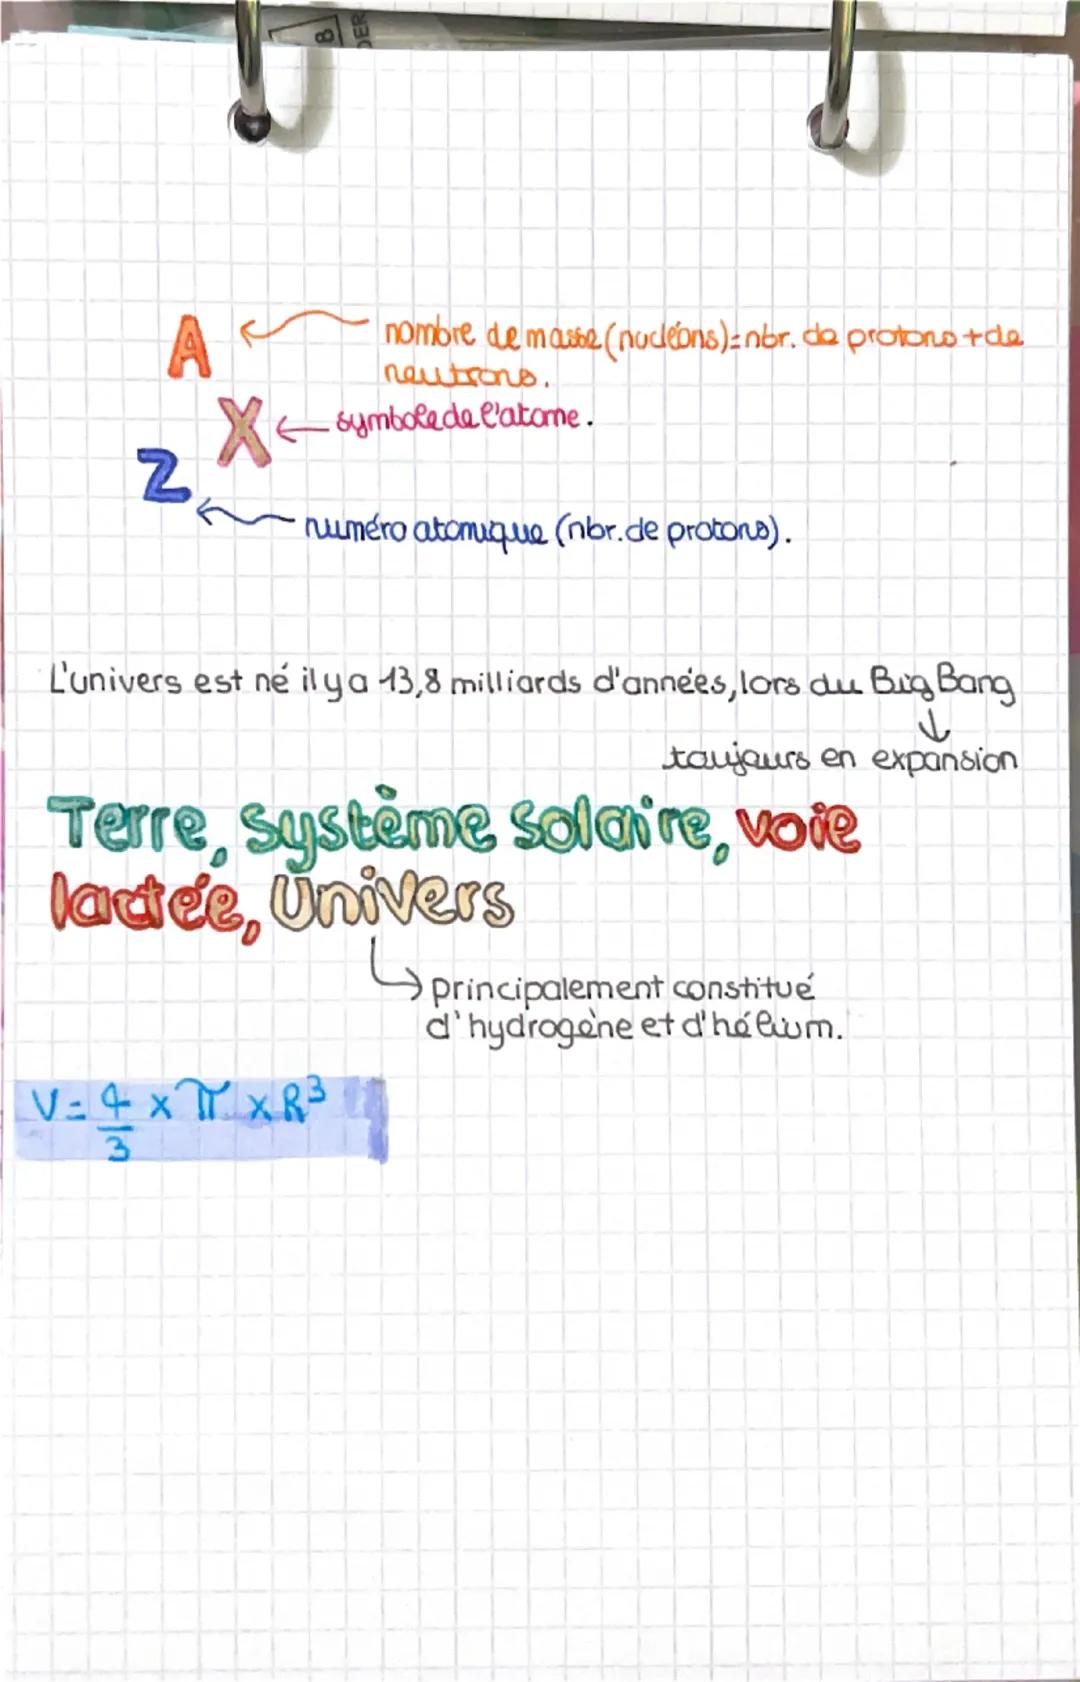 B
DER
A
nombre de masse (nucléons)=nbr. de protons + de
neutrons.
X ← symbole de l'atome.
Z
numéro atomique (nbr. de protons).
L'univers est né il y a 13,8 milliards d'années, lors du Big Bang
↓
toujours en expansion
Terre, système solaire, voie
lactée, Univers
principalement constitué
d'hydrogène et d'hélium.
V = 4/3 × π × R³